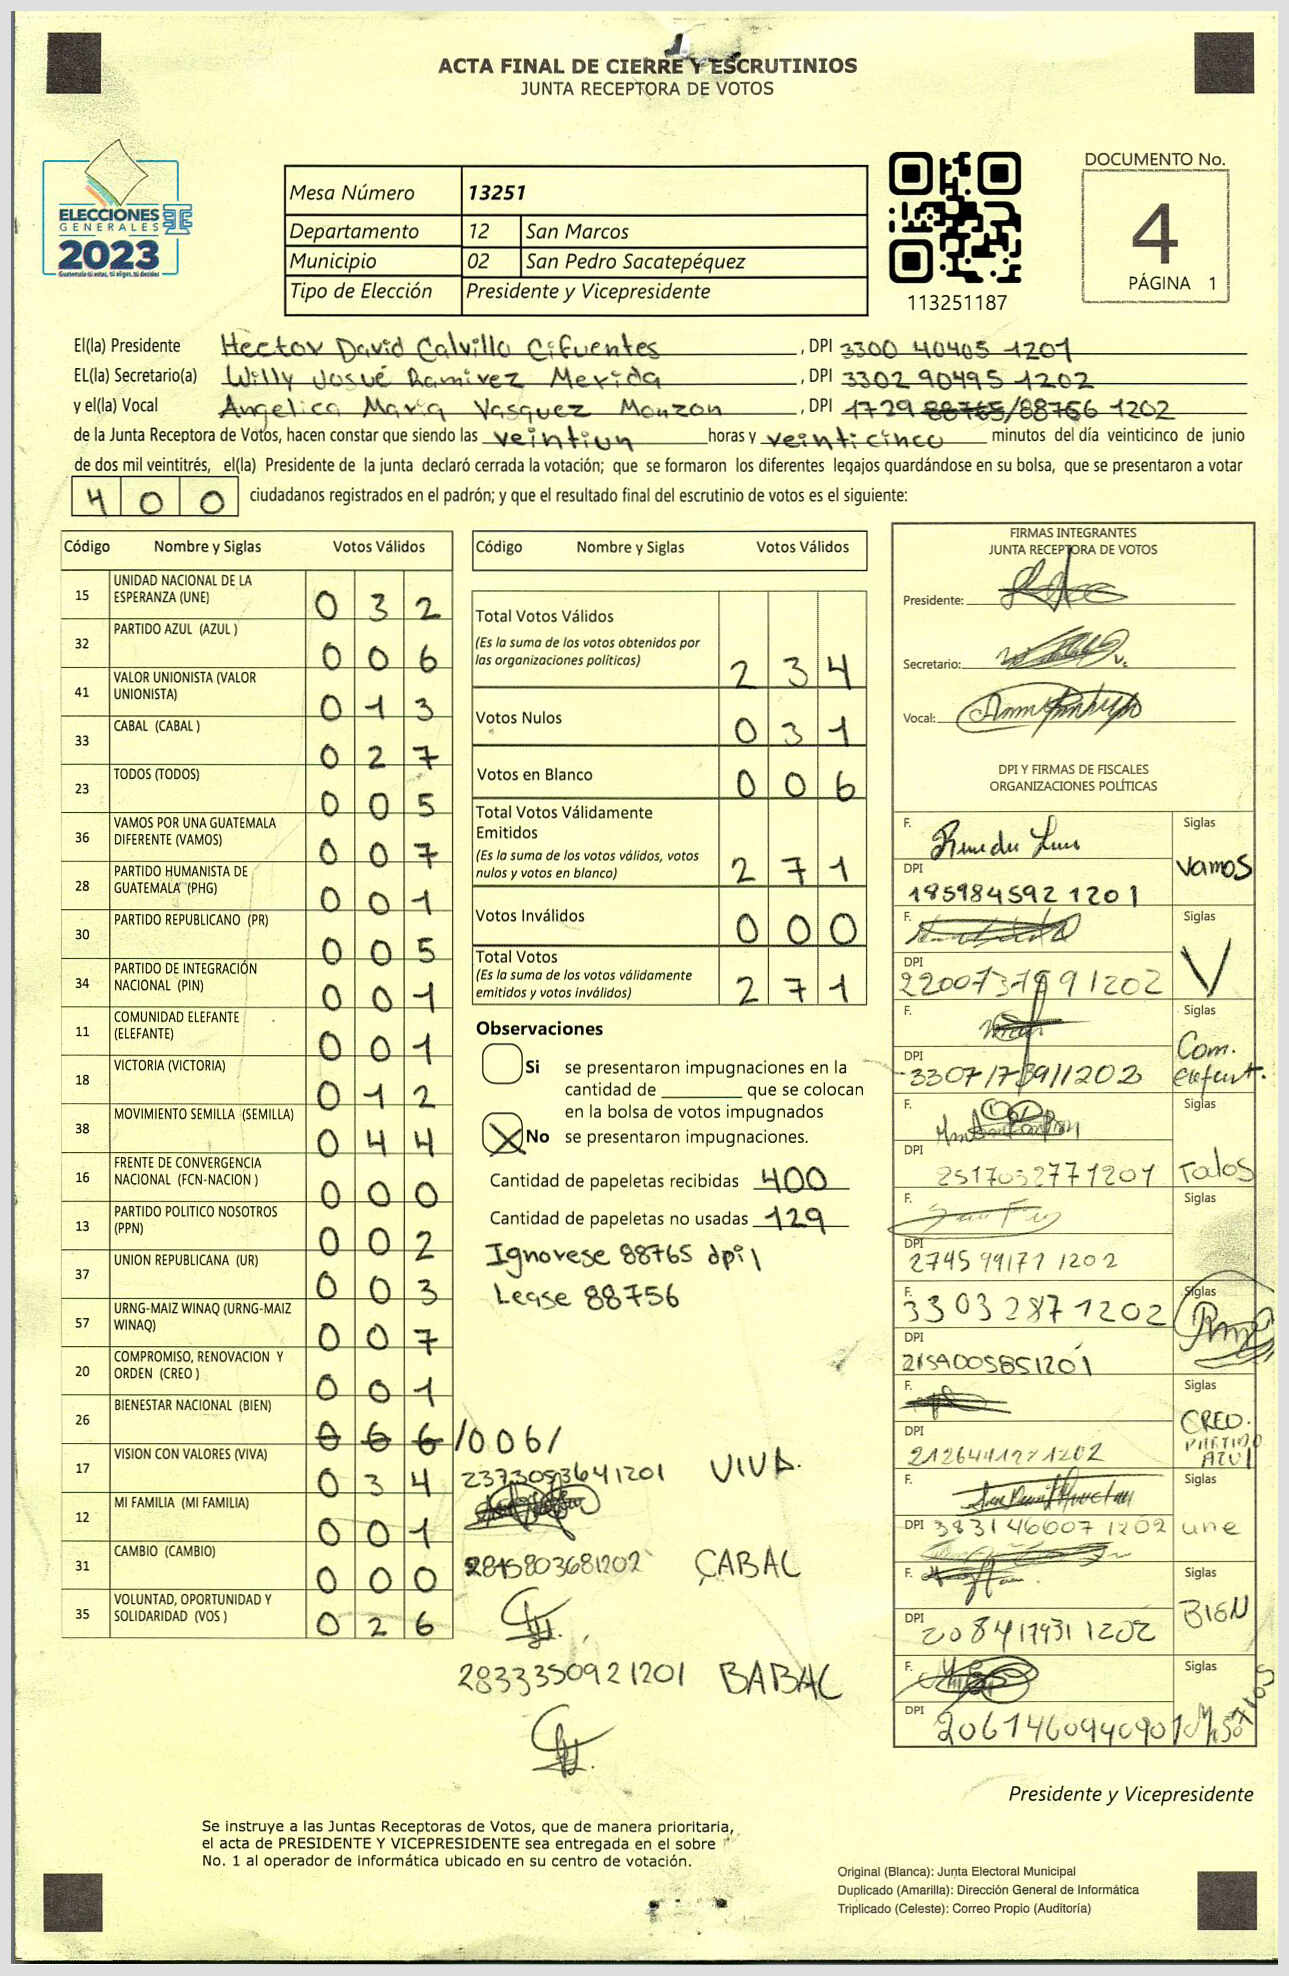 ACTA FINAL DE CIERRE Y ESCRUTINIOS
JUNTA RECEPTORA DE VOTOS
ELECCIONES
GENERALES
2023
Guatemala tú votas, tú eliges, tú decides
Mesa Número 13251
Departamento 12 San Marcos
Municipio 02 San Pedro Sacatepéquez
Tipo de Elección Presidente y Vicepresidente
113251187
DOCUMENTO No.
4
PÁGINA 1
El(la) Presidente Hector David Calvillo Cifuentes, DPI 3300 40405 1201
EL(la) Secretario(a) Willy Josué Ramirez Merida, DPI 3302 90495 1202
y el(la) Vocal Angelica Maria Vasquez Monzon, DPI 1729 88765/88756 1202
de la Junta Receptora de Votos, hacen constar que siendo las veintiun horas y veinticinco minutos del día veinticinco de junio
de dos mil veintitrés, el(la) Presidente de la junta declaró cerrada la votación; que se formaron los diferentes legajos guardándose en su bolsa, que se presentaron a votar
400 ciudadanos registrados en el padrón; y que el resultado final del escrutinio de votos es el siguiente:
Código Nombre y Siglas Votos Válidos
15 UNIDAD NACIONAL DE LA ESPERANZA (UNE) 032
32 PARTIDO AZUL (AZUL ) 006
41 VALOR UNIONISTA (VALOR UNIONISTA) 013
33 CABAL (CABAL ) 027
23 TODOS (TODOS) 005
36 VAMOS POR UNA GUATEMALA DIFERENTE (VAMOS) 007
28 PARTIDO HUMANISTA DE GUATEMALA (PHG) 001
30 PARTIDO REPUBLICANO (PR) 005
34 PARTIDO DE INTEGRACIÓN NACIONAL (PIN) 001
11 COMUNIDAD ELEFANTE (ELEFANTE) 001
18 VICTORIA (VICTORIA) 012
38 MOVIMIENTO SEMILLA (SEMILLA) 044
16 FRENTE DE CONVERGENCIA NACIONAL (FCN-NACION ) 000
13 PARTIDO POLITICO NOSOTROS (PPN) 002
37 UNION REPUBLICANA (UR) 003
57 URNG-MAIZ WINAQ (URNG-MAIZ WINAQ) 007
20 COMPROMISO, RENOVACION Y ORDEN (CREO ) 001
26 BIENESTAR NACIONAL (BIEN) 066 /006/
17 VISION CON VALORES (VIVA) 034
12 MI FAMILIA (MI FAMILIA) 001
31 CAMBIO (CAMBIO) 000
35 VOLUNTAD, OPORTUNIDAD Y SOLIDARIDAD (VOS ) 026
Código Nombre y Siglas Votos Válidos
Total Votos Válidos
(Es la suma de los votos obtenidos por
las organizaciones políticas) 234
Votos Nulos 031
Votos en Blanco 006
Total Votos Válidamente
Emitidos
(Es la suma de los votos válidos, votos
nulos y votos en blanco) 271
Votos Inválidos 000
Total Votos
(Es la suma de los votos válidamente
emitidos y votos inválidos) 271
Observaciones
Si se presentaron impugnaciones en la
cantidad de ________ que se colocan
en la bolsa de votos impugnados
No se presentaron impugnaciones.
Cantidad de papeletas recibidas 400
Cantidad de papeletas no usadas 129
Ignorese 88765 dpi
Lease 88756
2373053641201 VIVA.
2845803681202 CABAL
2833350921201 BABAL
FIRMAS INTEGRANTES
JUNTA RECEPTORA DE VOTOS
Presidente:
Secretario:
Vocal:
DPI Y FIRMAS DE FISCALES
ORGANIZACIONES POLÍTICAS
F. Siglas
DPI Vamos
185984592 1201
F. Siglas
DPI V
F. Siglas
DPI Com. elefant.
F. Siglas
DPI
2517032771201 Todos
F. Siglas
DPI
F. Siglas
3303 2871202
DPI
F. Siglas
DPI CREO.
PARTIDO
AZUL
F. Siglas
DPI 3831460071202 une
F. Siglas
DPI BIEN
F. Siglas
DPI
2061460940901
Presidente y Vicepresidente
Se instruye a las Juntas Receptoras de Votos, que de manera prioritaria,
el acta de PRESIDENTE Y VICEPRESIDENTE sea entregada en el sobre
No. 1 al operador de informática ubicado en su centro de votación.
Original (Blanca): Junta Electoral Municipal
Duplicado (Amarilla): Dirección General de Informática
Triplicado (Celeste): Correo Propio (Auditoría)